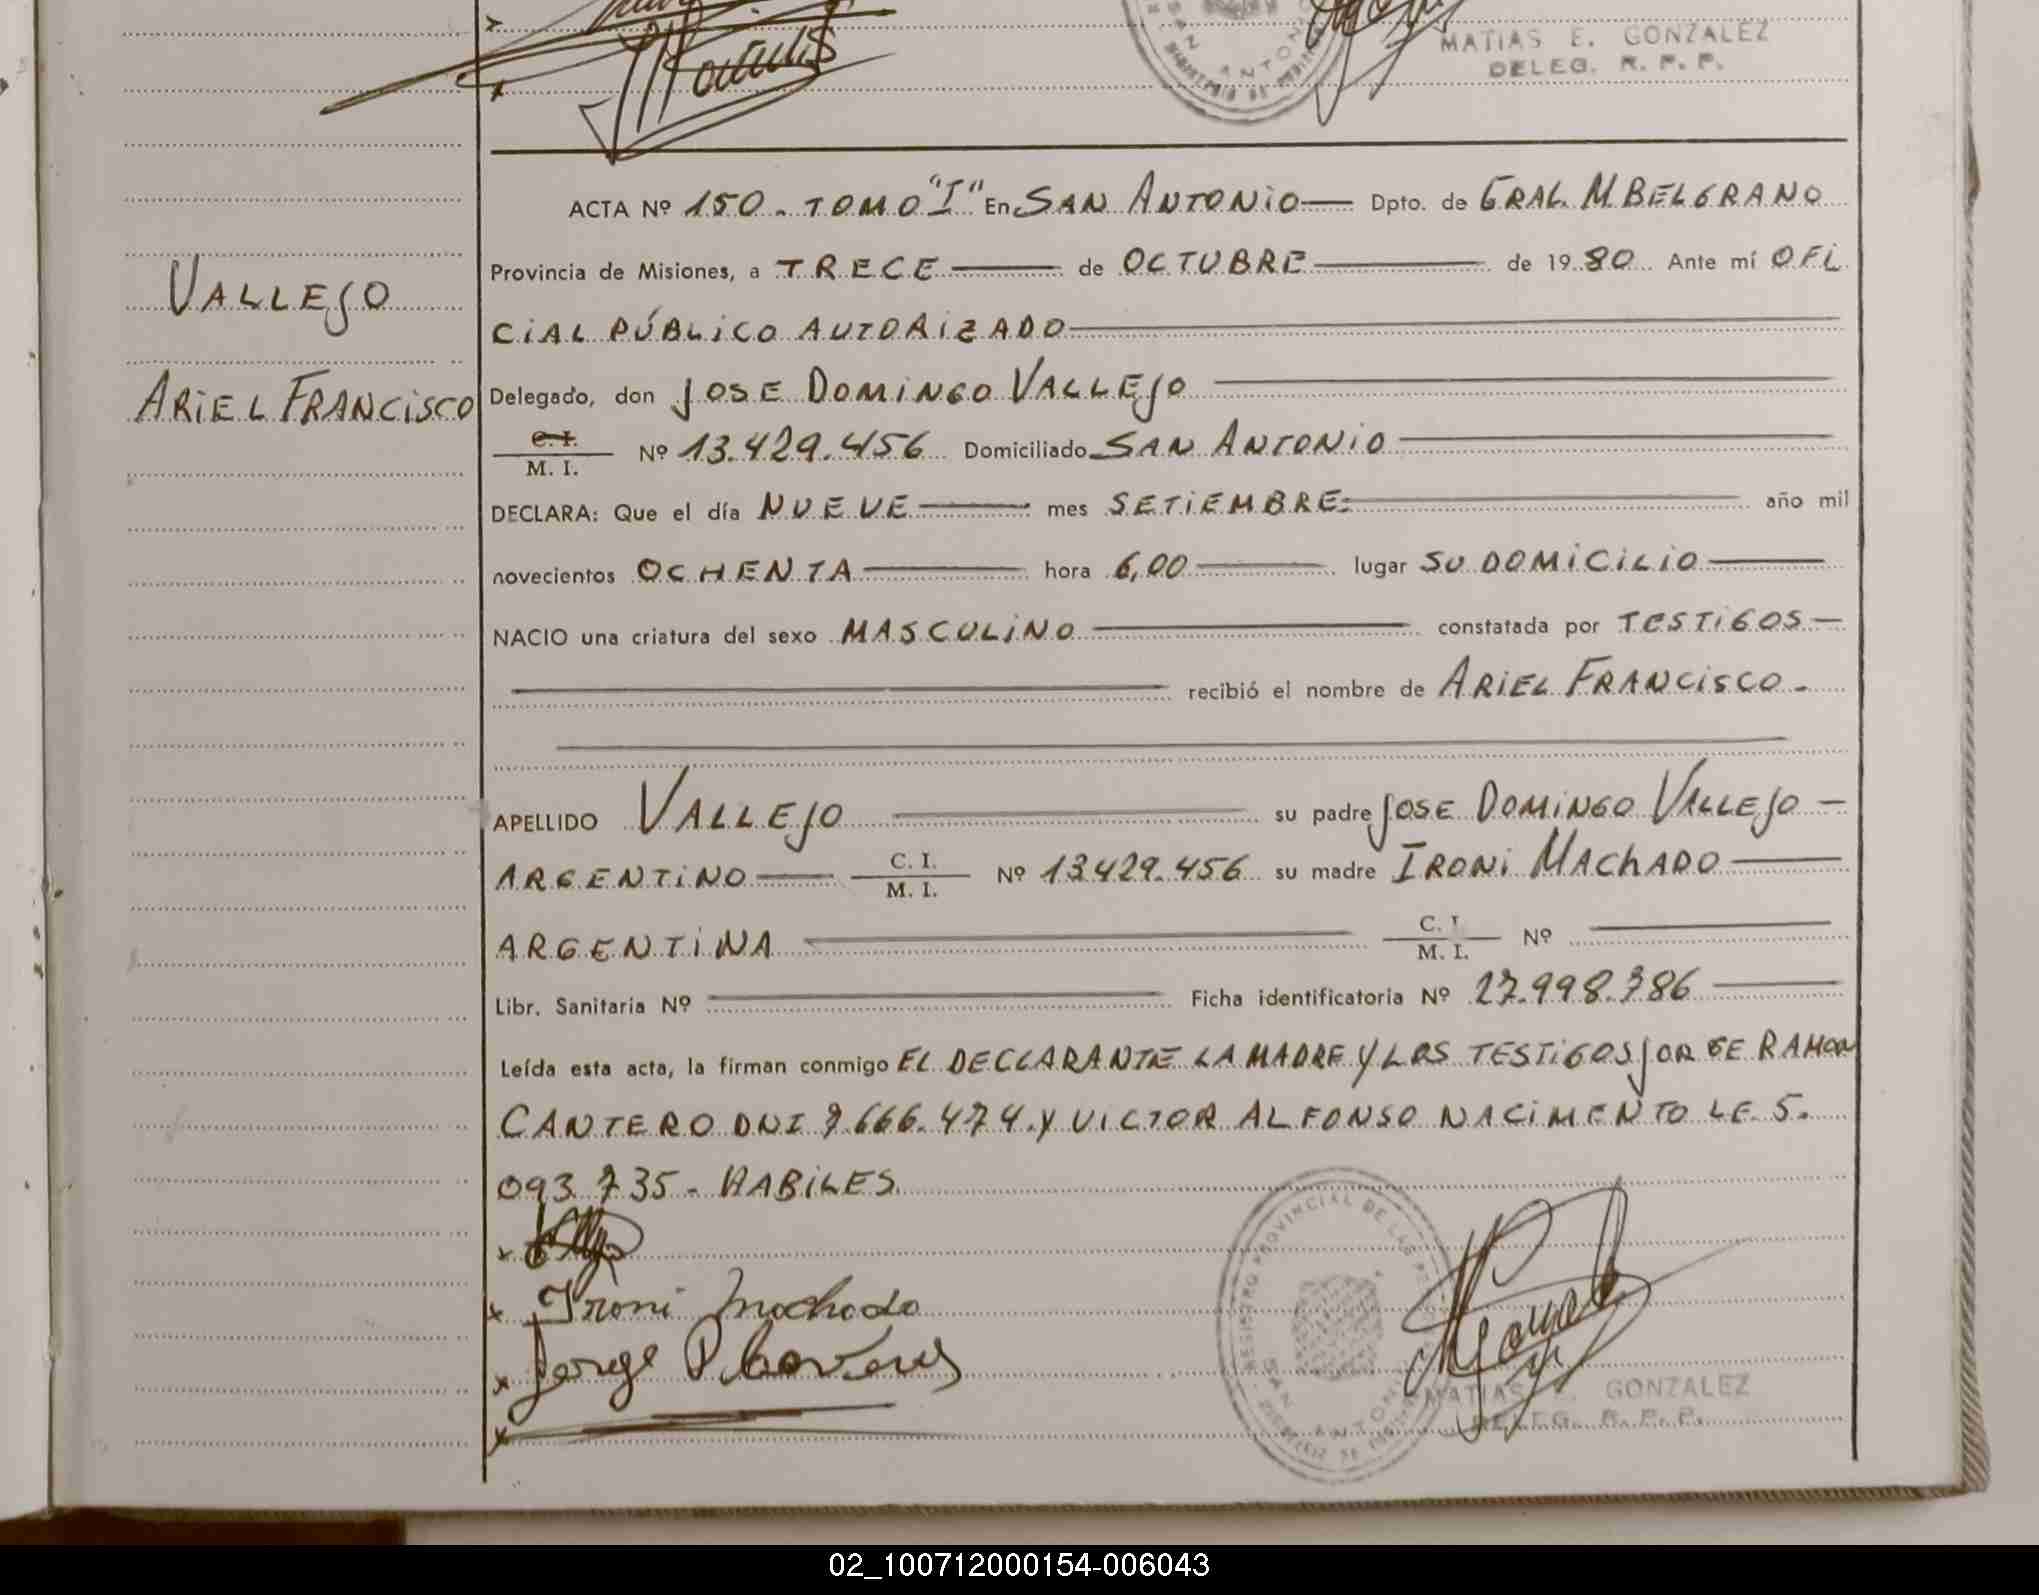 MATIAS E. GONZALEZ
DELEG. R. P. P.
ACTA Nº 150. TOMO "I" En SAN ANTONIO Dpto. de GRAL. M. BELGRANO
Provincia de Misiones, a TRECE de OCTUBRE de 1980 Ante mí OFI
CIAL PÚBLICO AUTORIZADO
VALLEJO
ARIEL FRANCISCO
Delegado, don JOSE DOMINGO VALLEJO
C. I.
M. I. Nº 13.429.456 Domiciliado SAN ANTONIO
DECLARA: Que el día NUEVE mes SETIEMBRE año mil
novecientos OCHENTA hora 6,00 lugar SU DOMICILIO
NACIO una criatura del sexo MASCULINO constatada por TESTIGOS
recibió el nombre de ARIEL FRANCISCO.
APELLIDO VALLEJO su padre JOSE DOMINGO VALLEJO
ARGENTINO C. I. M. I. Nº 13.429.456 su madre IRONI MACHADO
ARGENTINA C. I. M. I. Nº
Libr. Sanitaria Nº Ficha identificatoria Nº 27.998.786
Leída esta acta, la firman conmigo EL DECLARANTE LA MADRE Y LOS TESTIGOS JORGE RAMON
CANTERO DNI 7.666.474. Y VICTOR ALFONSO NACIMENTO LE 5.
093.735 - HABILES
Ironi Machado
Jorge R
REGISTRO PROVINCIAL DE LAS
SAN ANTONIO
MATIAS E. GONZALEZ
DELEG. R. P. P.
02_100712000154-006043